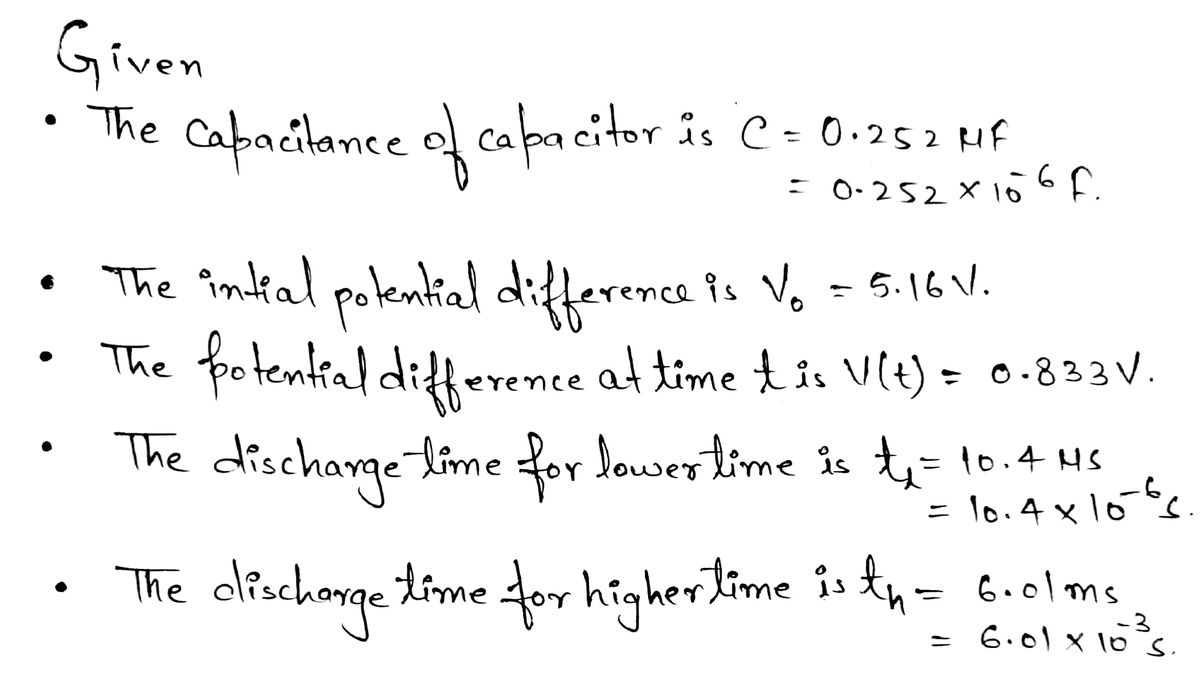 Given
• The capacitance of capacitor is C = 0.252 μF
= 0.252 × 10⁻⁶ F.
• The intial potential difference is V₀ = 5.16 V.
• The potential difference at time t is V(t) = 0.833V.
• The discharge time for lower time is tₗ = 10.4 μs
= 10.4 × 10⁻⁶ s.
• The discharge time for higher time is tₕ = 6.01 ms
= 6.01 × 10⁻³ s.